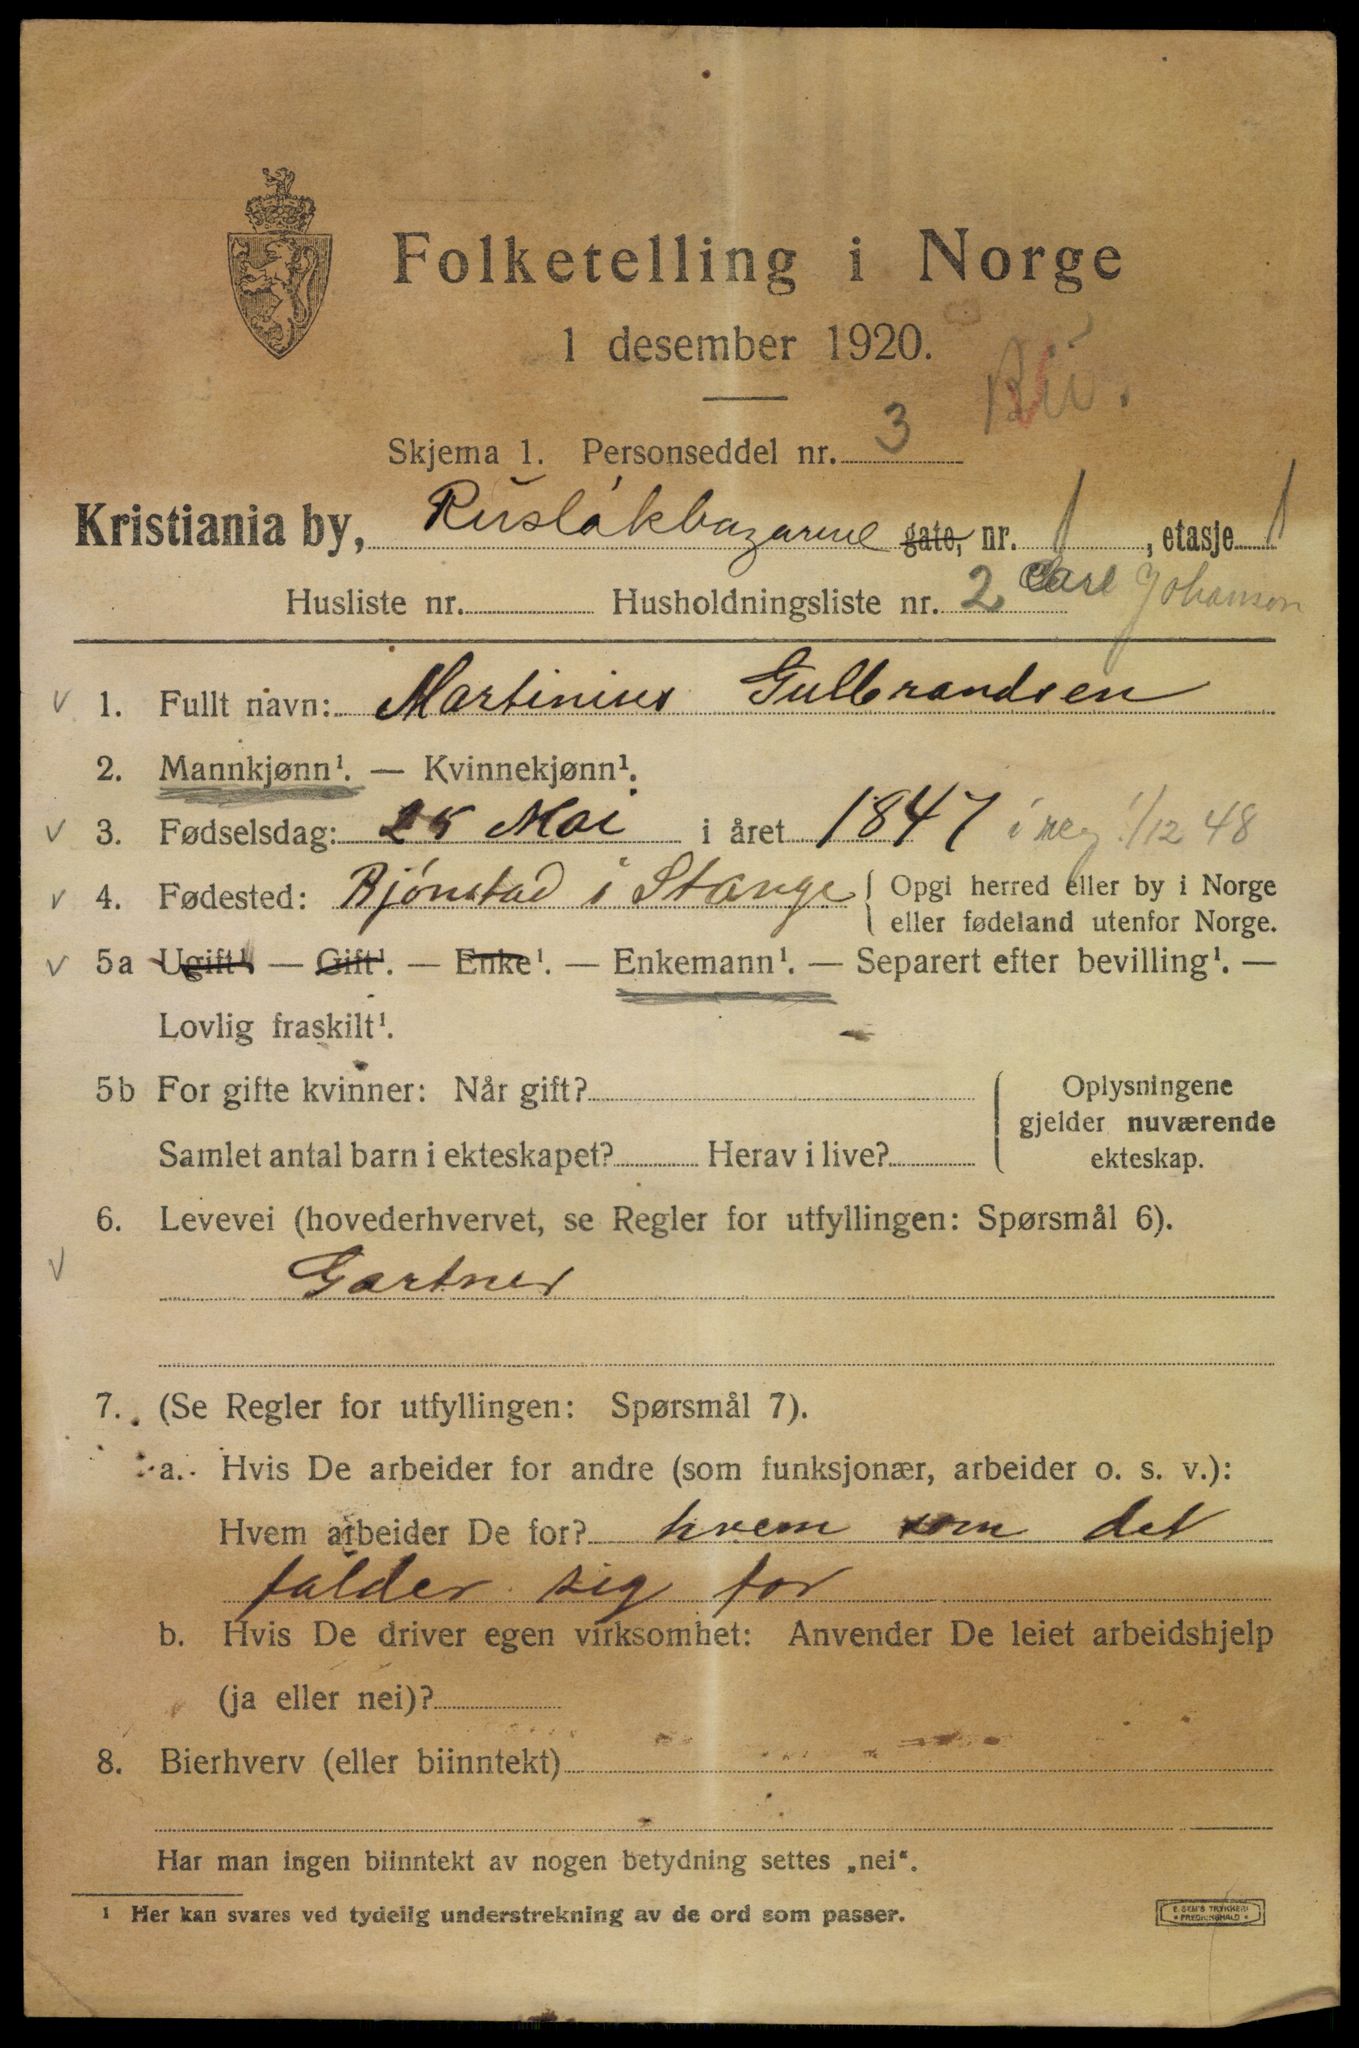 Folketelling i Norge
1 desember 1920.
Skjema 1. Personseddel nr. 3
Kristiania by, Rusløkbazarene gate, nr. 1, etasje 1
Husliste nr. Husholdningsliste nr. 2 Carl Johanson
1. Fullt navn: Martinius Gulbrandsen
2. Mannkjønn¹. — Kvinnekjønn¹.
3. Fødselsdag: Mai i året 1847 1/12 48
4. Fødested: Bjønstad i Stange { Opgi herred eller by i Norge
eller fødeland utenfor Norge.
5a Ugift¹. — Gift¹. — Enke¹. — Enkemann¹. — Separert efter bevilling¹. —
Lovlig fraskilt¹.
5b For gifte kvinner: Når gift? Oplysningene
gjelder nuværende
Samlet antal barn i ekteskapet? Herav i live? ekteskap.
6. Levevei (hovederhvervet, se Regler for utfyllingen: Spørsmål 6).
Gartner
7. (Se Regler for utfyllingen: Spørsmål 7).
a. Hvis De arbeider for andre (som funksjonær, arbeider o. s. v.):
Hvem arbeider De for? hvem som det
falder sig for
b. Hvis De driver egen virksomhet: Anvender De leiet arbeidshjelp
(ja eller nei)?
8. Bierhverv (eller biinntekt)
Har man ingen biinntekt av nogen betydning settes „nei“.
¹ Her kan svares ved tydelig understrekning av de ord som passer.
E. SEM'S TRYKKERI
* FREDRIKSHALD *